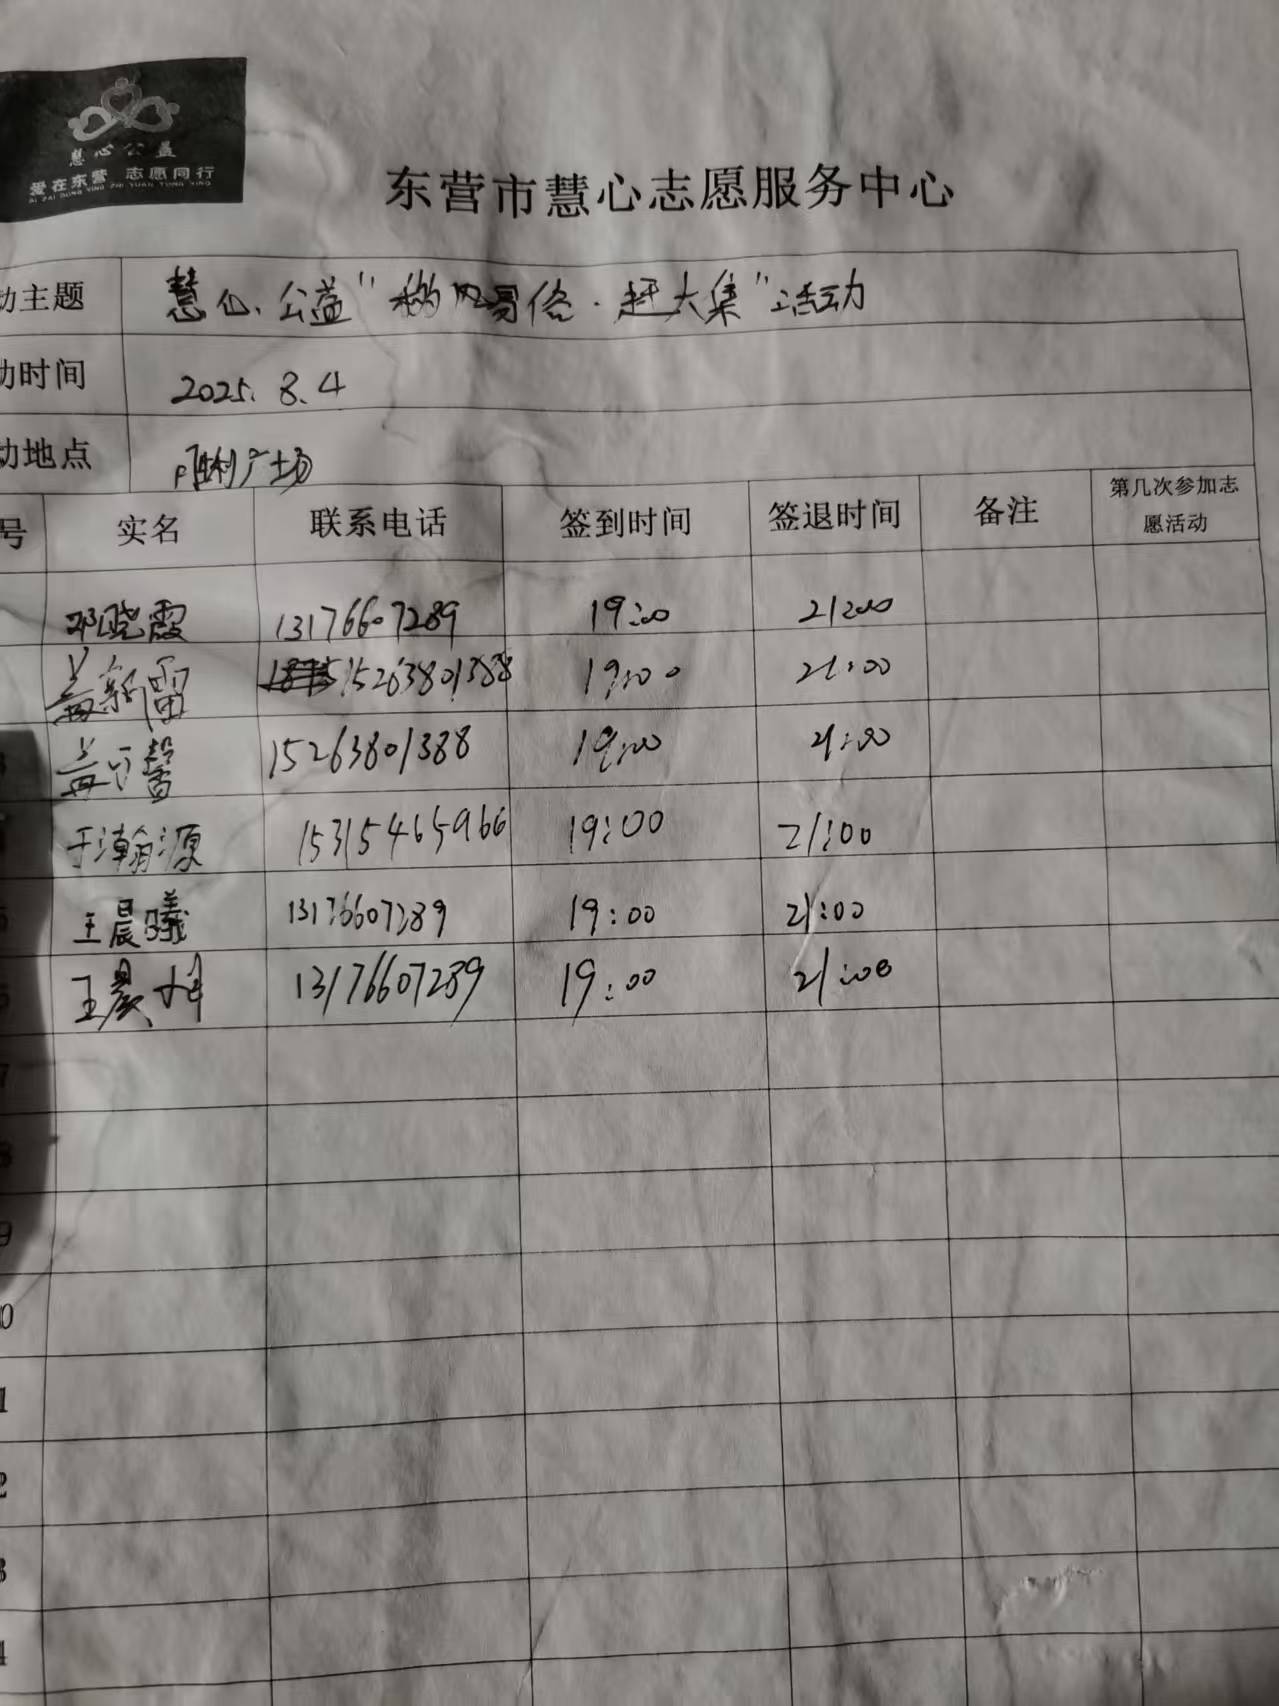 慧心公益
爱在东营 志愿同行
AI ZAI DONG YING ZHI YUAN TONG XING
东营市慧心志愿服务中心
动主题 慧心公益"移风易俗·赶大集"活动
动时间 2025.8.4
动地点 胜利广场
号 实名 联系电话 签到时间 签退时间 备注 第几次参加志
愿活动
邓晓霞 13176607289 19:00 21:00
盖新雷 15263801388 19:00 21:00
3 盖可馨 15263801388 19:00 21:00
于瀚源 15315465966 19:00 21:00
5 王晨曦 13176607289 19:00 21:00
6 王晨 13176607289 19:00 21:00
7
8
9
0
1
2
3
4